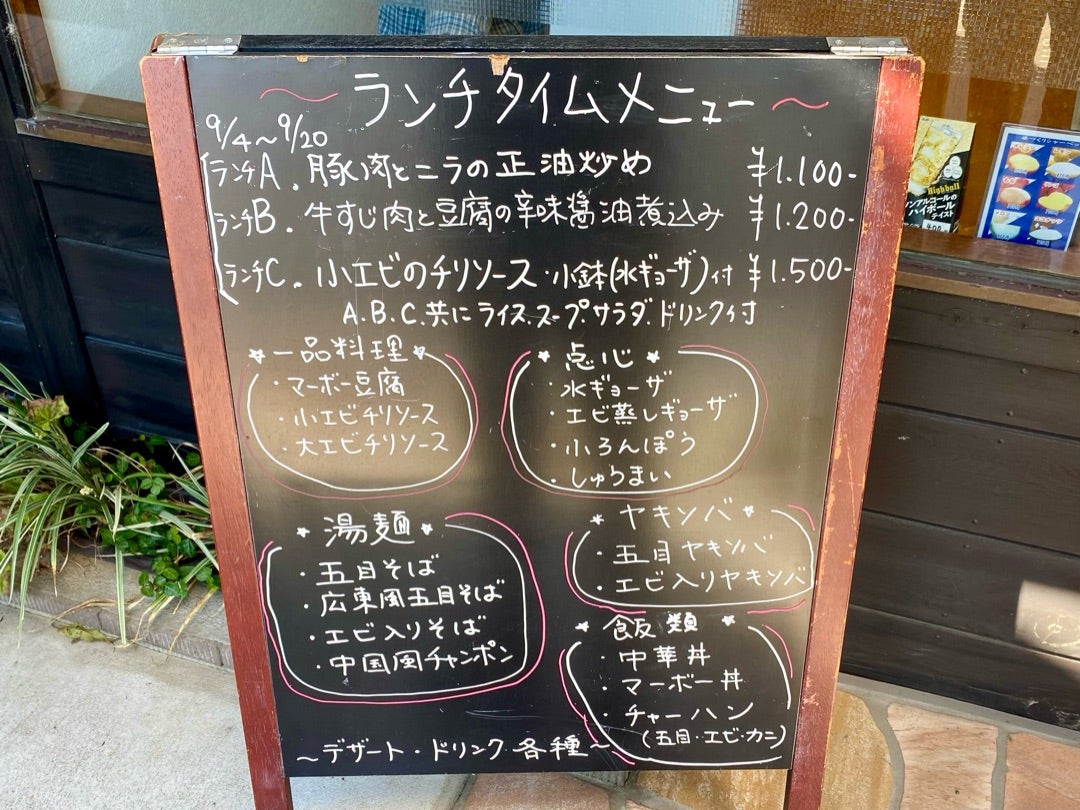 ～ランチタイムメニュー～
9/4～9/20
ランチA. 豚肉とニラの正油炒め ¥1.100-
ランチB. 牛すじ肉と豆腐の辛味醤油煮込み ¥1.200-
ランチC. 小エビのチリソース・小鉢(水ギョーザ)付 ¥1.500-
A.B.C.共にライス.スープ.サラダ.ドリンク付
★一品料理★
・マーボー豆腐
・小エビチリソース
・大エビチリソース
★点心★
・水ギョーザ
・エビ蒸しギョーザ
・小ろんぽう
・しゅうまい
★湯麺★
・五目そば
・広東風五目そば
・エビ入りそば
・中国風チャンポン
★ヤキソバ★
・五目ヤキソバ
・エビ入りヤキソバ
★飯類★
・中華丼
・マーボー丼
・チャーハン
(五目・エビ・カニ)
～デザート・ドリンク各種～
Highball
ノンアルコールの
ハイボール
テイスト